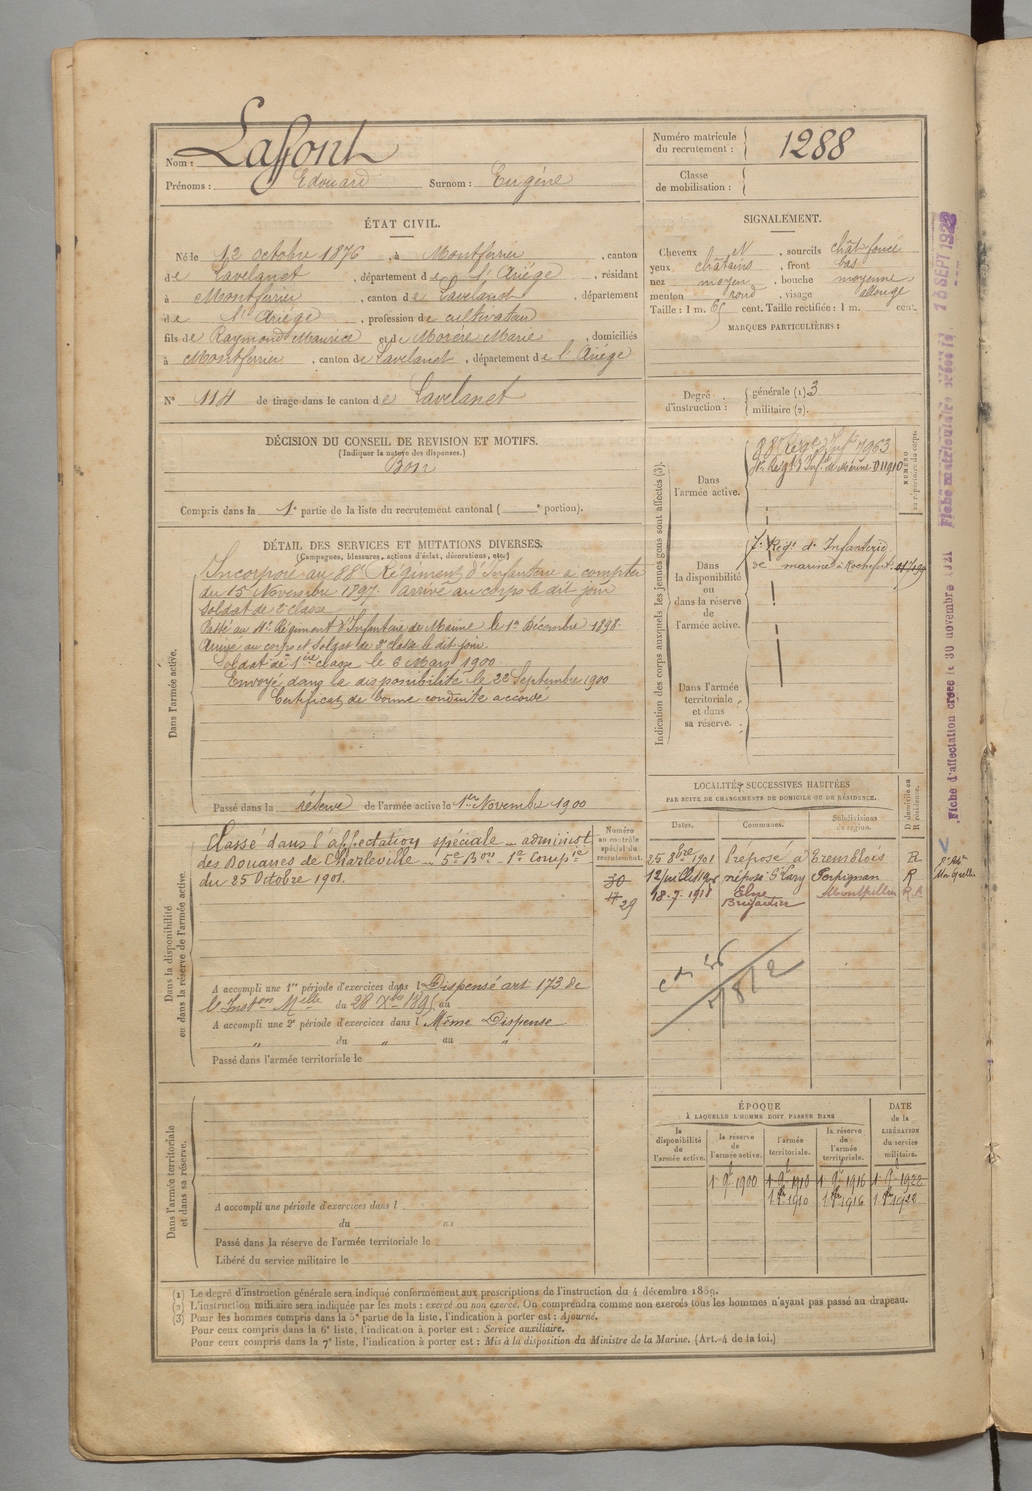 Nom : Lafont
Prénoms : Edouard Surnom : Eugène
Numéro matricule du recrutement : 1288
Classe de mobilisation :
ÉTAT CIVIL.
Né le 12 octobre 1876, à Montferrier, canton
de Lavelanet, département de l'Ariége, résidant
à Montferrier, canton de Lavelanet, département
de l'Ariége, profession de cultivateur
fils de Raymond Maurice et de Moréré Marie, domiciliés
à Montferrier, canton de Lavelanet, département de l'Ariége
N° 114 de tirage dans le canton de Lavelanet
SIGNALEMENT.
Cheveux N, sourcils chât foncé
yeux chatains, front bas
nez moyen, bouche moyenne
menton rond, visage allongé
Taille : 1 m. 65 cent. Taille rectifiée : 1 m. cent.
MARQUES PARTICULIÈRES :
Degré d'instruction : générale (1) 3
militaire (2).
DÉCISION DU CONSEIL DE REVISION ET MOTIFS.
(Indiquer la nature des dispenses.)
Bon
Compris dans la 1e partie de la liste du recrutement cantonal ( e portion).
DÉTAIL DES SERVICES ET MUTATIONS DIVERSES.
(Campagnes, blessures, actions d'éclat, décorations, etc.)
Dans l'armée active.
Incorporé au 88e Régiment d'Infanterie à compter
du 15 Novembre 1897. Arrivé au corps le dit jour
Soldat de 2e classe
Passé au 4e Régiment d'Infanterie de Marine le 1er Décembre 1898.
Arrivé au corps et Soldat de 2e classe le dit jour.
Soldat de 1ère classe le 6 Mars 1900
Envoyé dans la disponibilité le 22 Septembre 1900
Certificat de bonne conduite accordé
Passé dans la réserve de l'armée active le 1er Novembre 1900
Indication des corps auxquels les jeunes gens sont affectés (3).
Dans l'armée active.
88e Régt d'Inft 7963
4e Régt d'Infie de Marine 11910
NUMÉRO au répertoire du corps.
Dans la disponibilité ou dans la réserve de l'armée active.
7e Régt d'Infanterie
de marine à Rochefort
Dans l'armée territoriale et dans sa réserve.
Dans la disponibilité ou dans la réserve de l'armée active.
Classé dans l'affectation spéciale - administ
des Douanes de Charleville - 5e Bon - 1e Compie
du 25 Octobre 1901.
Numéro au contrôle spécial du recrutement.
30
17
29
A accompli une 1re période d'exercices dans l Dispensé art 173 de
l'Inston Melle du 28 Xbre 1895 au
A accompli une 2e période d'exercices dans l Même Dispense
" du " au "
Passé dans l'armée territoriale le
LOCALITÉS SUCCESSIVES HABITÉES
PAR SUITE DE CHANGEMENTS DE DOMICILE OU DE RÉSIDENCE.
Dates. Communes. Subdivisions de région. D domicile ou R résidence.
25 8bre 1901 Préposé à Tremblois R
Perpignan R
18.7.1918 Elne Montpellier
Brigadier
1812
Dans l'armée territoriale et dans sa réserve.
A accompli une période d'exercices dans l
du au
Passé dans la réserve de l'armée territoriale le
Libéré du service militaire le
ÉPOQUE
À LAQUELLE L'HOMME DOIT PASSER DANS
la disponibilité de l'armée active. la réserve de l'armée active. l'armée territoriale. la réserve de l'armée territoriale.
DATE de la LIBÉRATION du service militaire.
1 9bre 1900 1 9bre 1910 1 9bre 1916 1 9bre 1922
1 8bre 1910 1 8bre 1916 1 8bre 1922
Fiche d'affectation créée le 30 novembre 1921
Fiche matriculaire créée le 18 SEPT 1928
(1) Le degré d'instruction générale sera indiqué conformément aux prescriptions de l'instruction du 4 décembre 1889.
(2) L'instruction militaire sera indiquée par les mots : exercé ou non exercé. On comprendra comme non exercés tous les hommes n'ayant pas passé au drapeau.
(3) Pour les hommes compris dans la 5e partie de la liste, l'indication à porter est : Ajourné.
Pour ceux compris dans la 6e liste, l'indication à porter est : Service auxiliaire.
Pour ceux compris dans la 7e liste, l'indication à porter est : Mis à la disposition du Ministre de la Marine. (Art. 4 de la loi.)